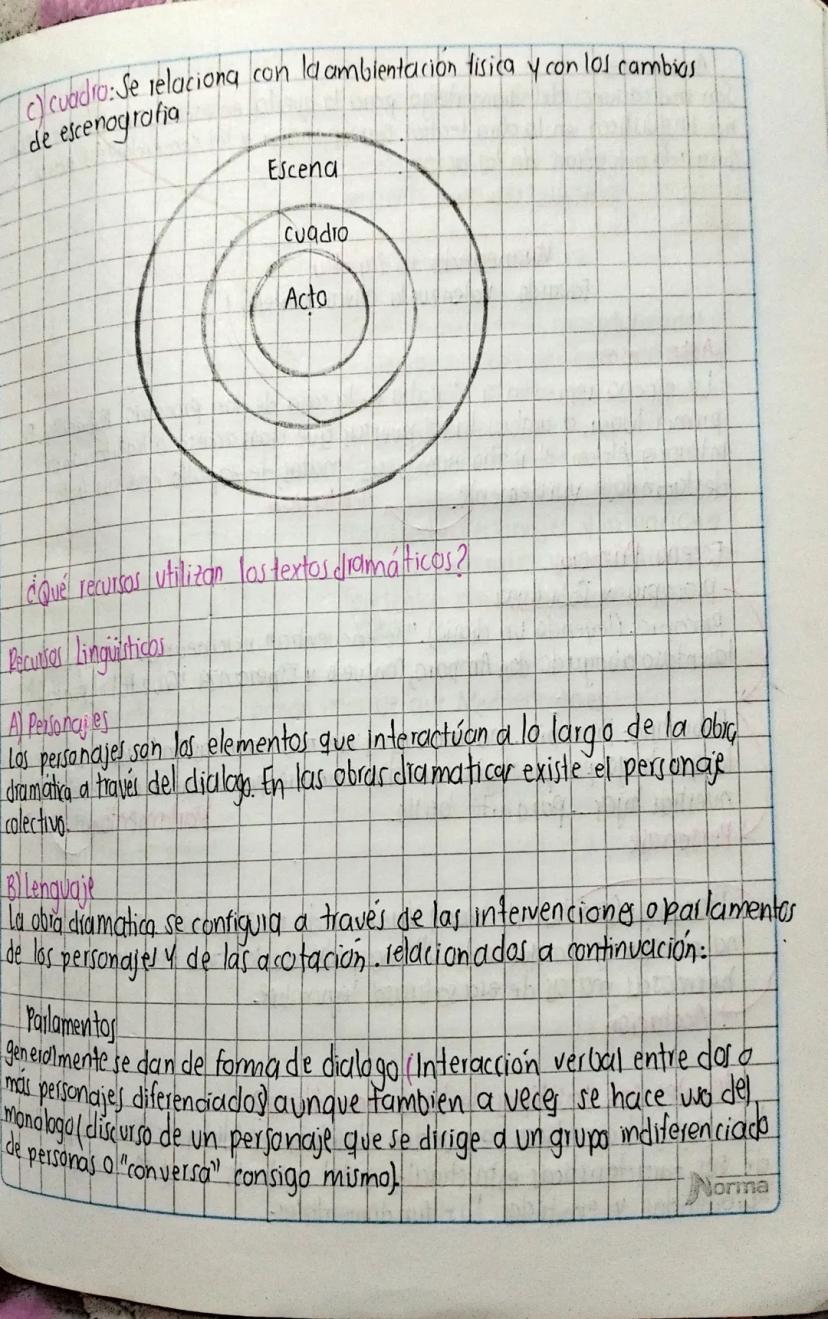 c) cuadro: Se relaciona con la ambientación fisica y con los cambios
de escenografia
Escena
cuadro
Acto
¿Qué recursos utilizan los textos dramáticos?
Recursos Lingüisticos
A) Personajes
Los personajes son los elementos que interactúan a lo largo de la obra
dramática a través del dialogo. En las obras dramaticas existe el personaje
colectivo.
B) Lenguaje
La obra dramatica se configura a través de las intervenciones o parlamentos
de los personajes y de las acotación. relacionados a continuación:
Parlamentos
generalmente se dan de forma de dialogo (Interacción verbal entre dos o
más personajes diferenciados) aunque tambien a veces se hace uso del
monologo (discurso de un personaje que se dirige a un grupo indiferenciado
de personas o "conversa" consigo mismo).
Norma